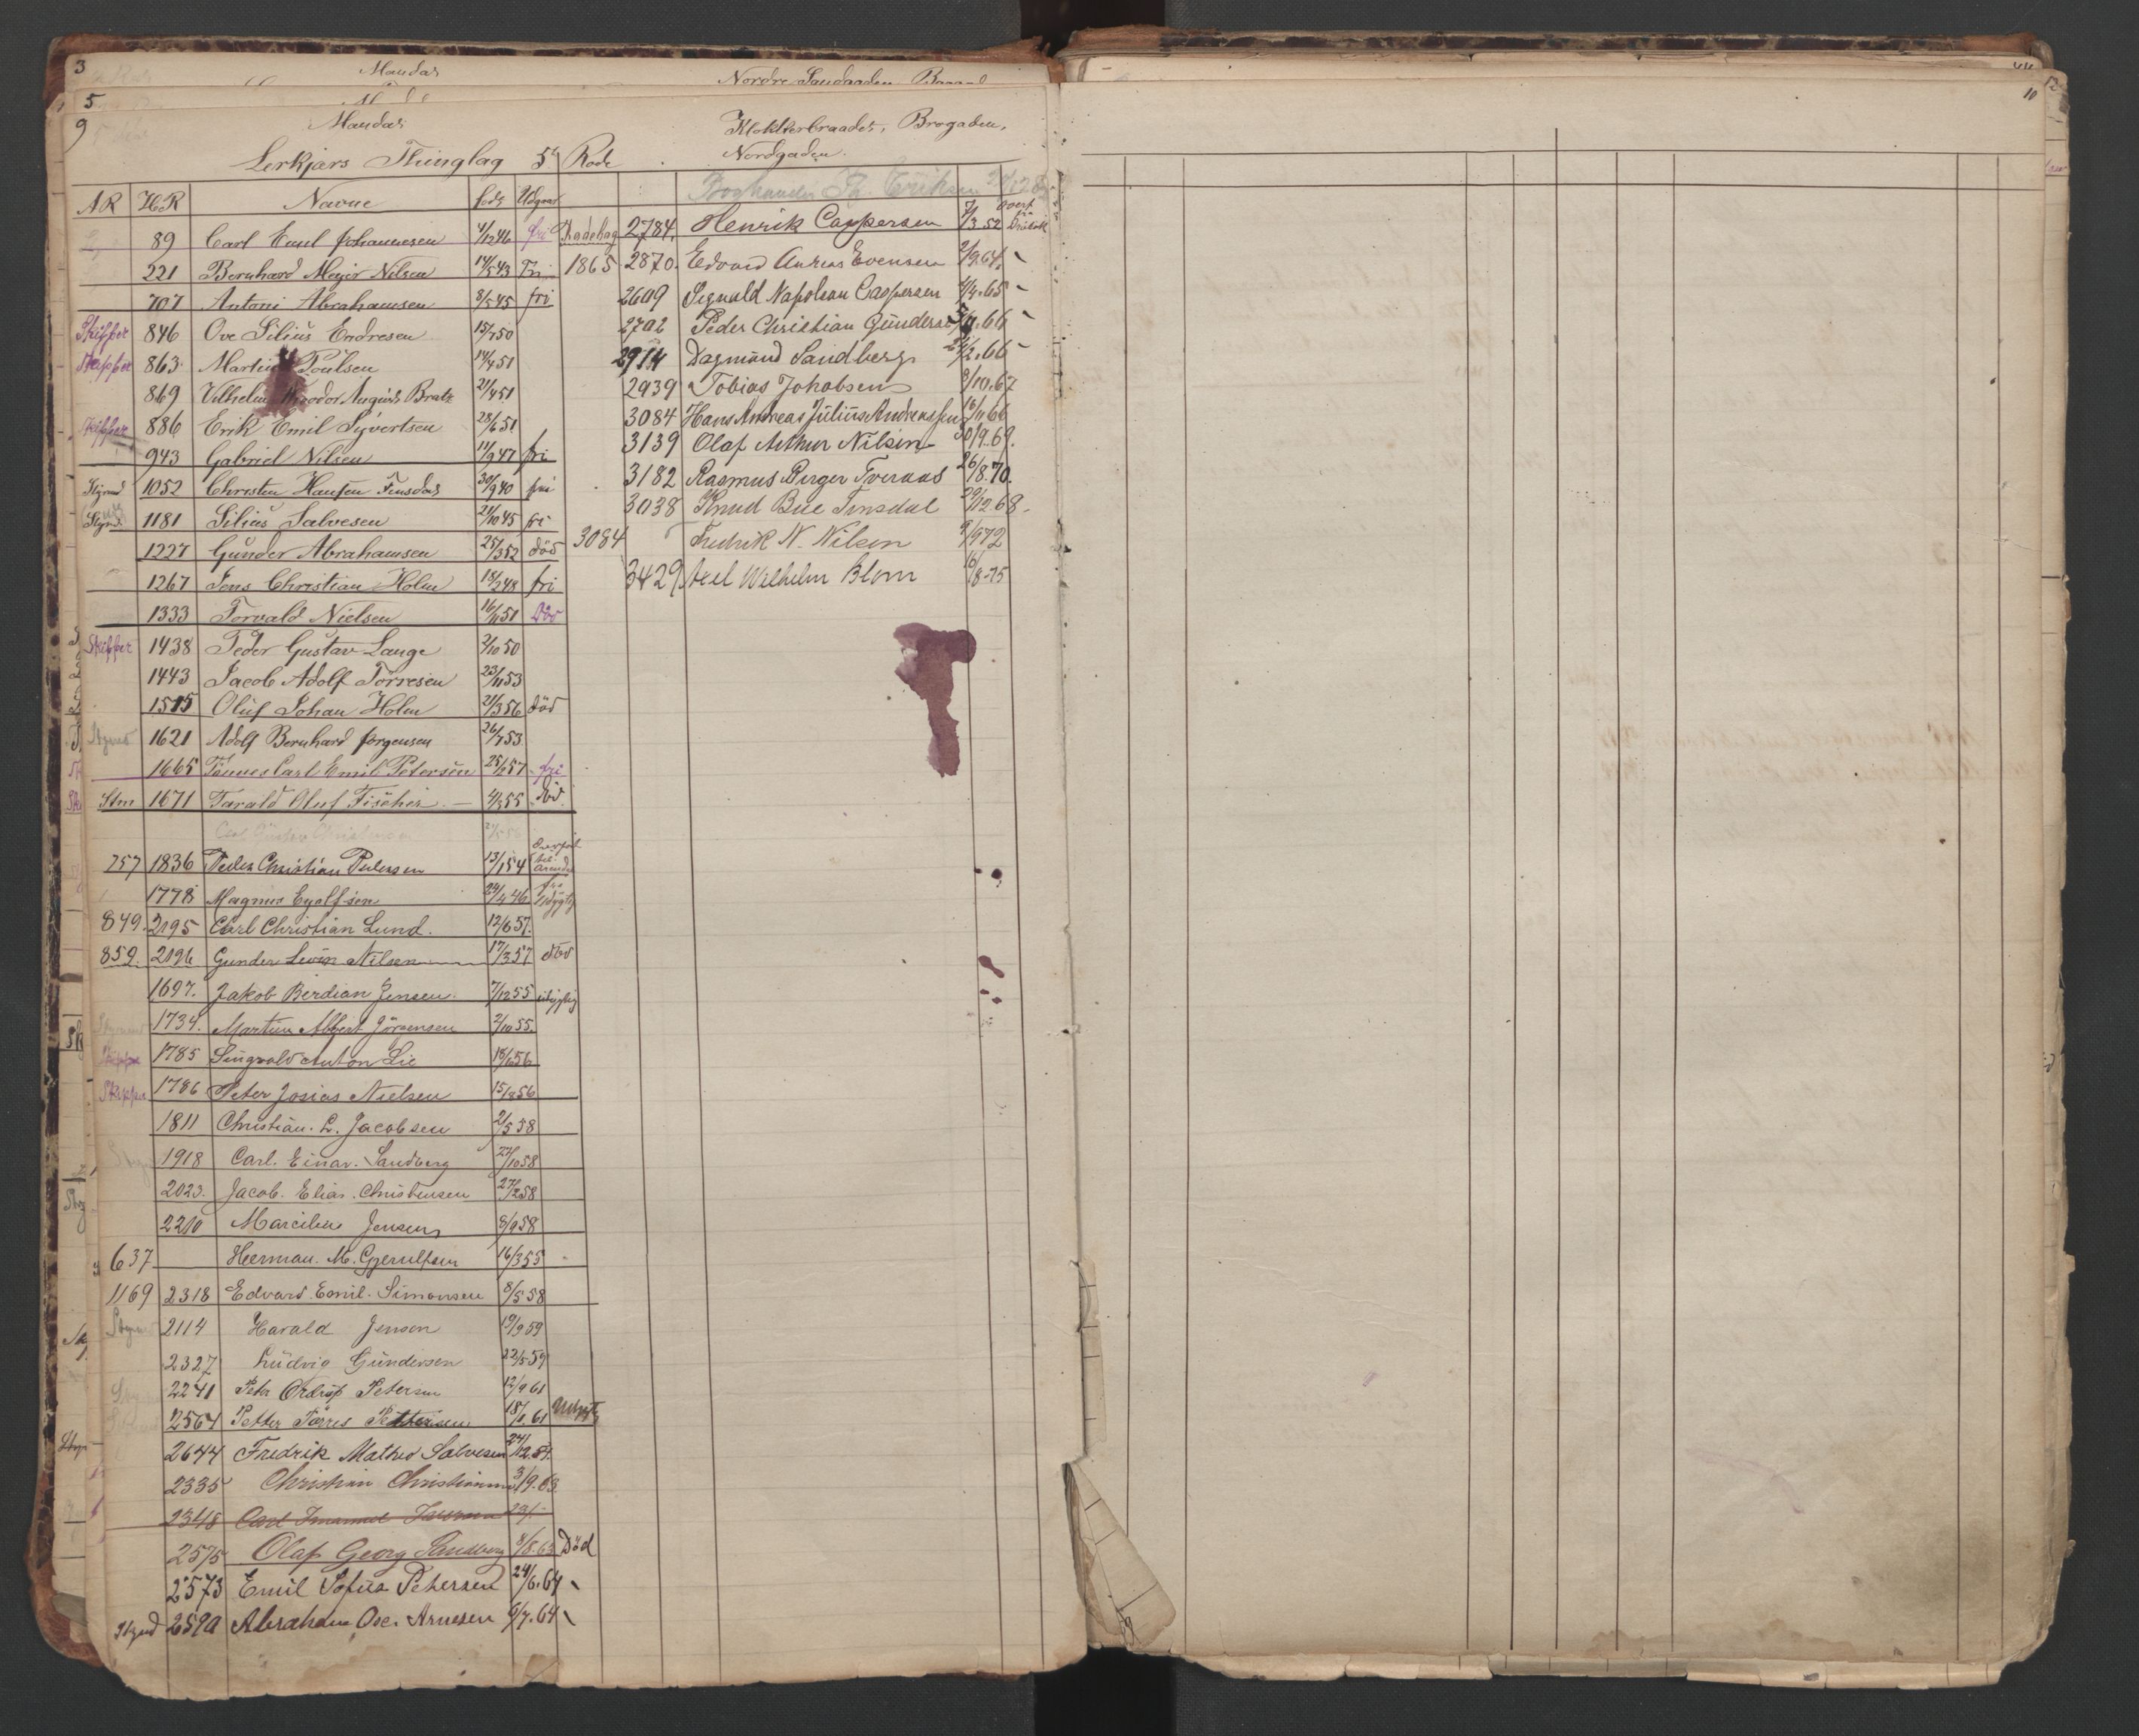 3 Mandal Nordre Sandgaden
5
9 Mandal Klokkerbraadet, Brogaden,
Lerkjærs Thinglag 5te Rode Nordgaden
AR HR Navne föds Udgaar
89 Carl Emil Johannesen 4/12 46 fri
221 Bernhard Meyer Nilsen 14/5 43 Fri
707 Antoni Abrahamsen 8/5 45 fri
Skipper 846 Ove Silius Endresen 15/7 50
Skipper 863 Martin Poulsen 14/4 51
869 Vilhelm Theodor August Bratz 21/4 51
Skipper 886 Erik Emil Syvertsen 28/6 51
943 Gabriel Nilsen 11/9 47 fri
Stymd 1052 Christen Hansen Finsdal 30/9 40 fri
Stymd 1181 Silius Salvesen 21/10 45 fri
1227 Gunder Abrahamsen 25/3 52 död
1267 Jens Christian Holm 18/2 48 fri
1333 Torvald Nielsen 16/11 51 Död
Skipper 1438 Peder Gustav Lange 2/10 50
1443 Jacob Adolf Törresen 23/11 53
1515 Oluf Johan Holm 21/3 56 död
1621 Adolf Bernhard Jörgensen 26/7 53
1665 Tönnes Carl Emil Petersen 25/2 57 fri
Stm 1671 Tarald Oluf Fischer 4/3 55 död
757 1836 Peder Christian Pedersen 13/1 54 overfört til Arendal
1778 Magnus Eyolfsen 24/4 46 fri udygtig
849 2195 Carl Christian Lund 12/6 57
859 2196 Gunder Levin Nilsen 17/3 57 död
1697 Jakob Berdian Jensen 7/12 55 udygtig
1734 Martin Albert Jörgensen 2/10 55
Skipper 1785 Singvald Anton Lie 18/6 56
Skipper 1786 Peter Josias Nielsen 15/8 56
1811 Christian L. Jacobsen 2/5 58
1918 Carl Einar Sandberg 27/10 58
2023 Jacob Elias Christensen 27/2 58
2210 Marcilius Jensen 8/9 58
637 Herman M. Gjerulfsen 16/3 55
1169 2318 Edvard Emil Simonsen 8/5 58
2114 Harald Jensen 19/9 59
2327 Ludvig Gundersen 22/5 59
2241 Peter Ordrup Petersen 12/9 61
2564 Petter Törres Pettersen 18/8 61
2644 Fredrik Matheo Salvesen 24/12
2335 Christian Christiansen 3/9. 63
2348 Carl Imanuel 23/
2575 Olaf Georg Sandberg 8/8. 63 Död
2573 Emil Sofus Petersen 24/6. 64
Stymd 2590 Abraham Osc. Arnesen 6/7. 64
2784 Henrik Caspersen 7/3 52 overf fra
1865 2870 Edvard Andreas Evensen 2/9. 64
2609 Sigvald Napoleon Caspersen 4/4. 65
2702 Peder Christian Gundersen 5/11. 66
2914 Dagmund Sandberg 24/2. 66
2939 Tobias Jakobsen 8/10. 67
3084 Hans Andreas Julius Andreassen 16/11 66
3139 Olaf Arthur Nilsen 30/9. 69.
3182 Rasmus Birger Tveraas 26/8. 70.
3038 Knud Bue Finsdal 29/12 68
3084 Fredrik N. Nilsen 9/9 72
3429 Axel Wilhelm Blom 16/8-75
10